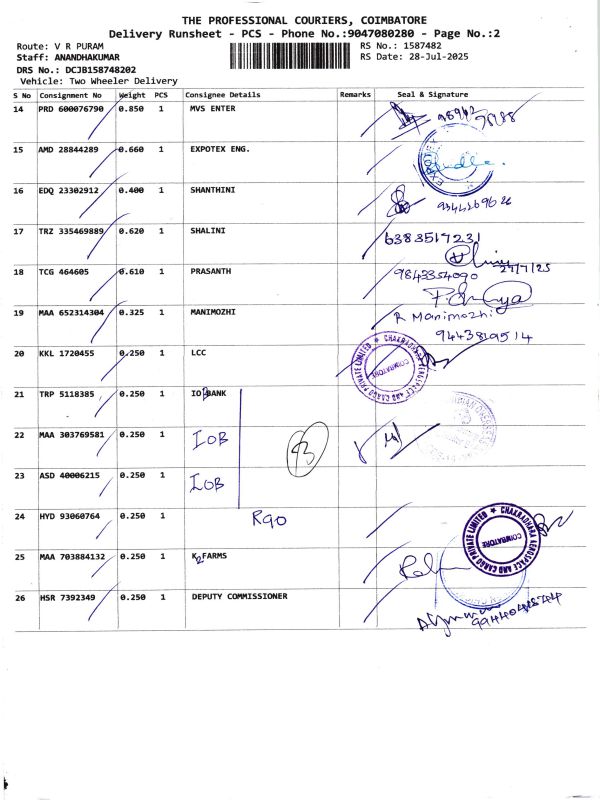 THE PROFESSIONAL COURIERS, COIMBATORE
Delivery Runsheet - PCS - Phone No.:9047080280 - Page No.:2
Route: V R PURAM
RS No.: 1587482
Staff: ANANDHAKUMAR
RS Date: 28-Jul-2025
DRS No.: DCJB158748202
Vehicle: Two Wheeler Delivery
S No Consignment No Weight PCS Consignee Details Remarks Seal & Signature
14 PRD 600076790 0.850 1 MVS ENTER
15 AMD 28844289 0.660 1 EXPOTEX ENG.
16 EDQ 23302912 0.400 1 SHANTHINI
17 TRZ 335469889 0.620 1 SHALINI 6383517231
27/7/25
18 TCG 464605 0.610 1 PRASANTH 9843354090
19 MAA 652314304 0.325 1 MANIMOZHI R Manimozhi
9443819514
20 KKL 1720455 0.250 1 LCC
CHAKRADHARA AEROSPACE AND CARGO PRIVATE LIMITED
COIMBATORE
21 TRP 5118385 0.250 1 IOB BANK
22 MAA 303769581 0.250 1 IOB
23 ASD 40006215 0.250 1 IOB
24 HYD 93060764 0.250 1 RGO
CHAKRADHARA AEROSPACE AND CARGO PRIVATE LIMITED
COIMBATORE
25 MAA 703884132 0.250 1 K2 FARMS
26 HSR 7392349 0.250 1 DEPUTY COMMISSIONER